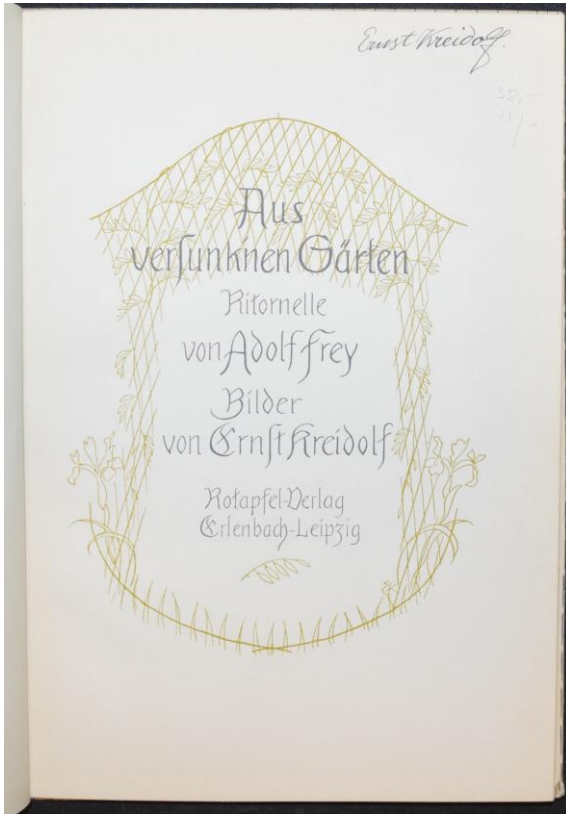 Ernst Kreidolf.
32,–
Aus
verſunk'nen Gärten
Ritornelle
von Adolf Frey
Bilder
von Ernſt Kreidolf
Rotapfel-Verlag
Erlenbach-Leipzig